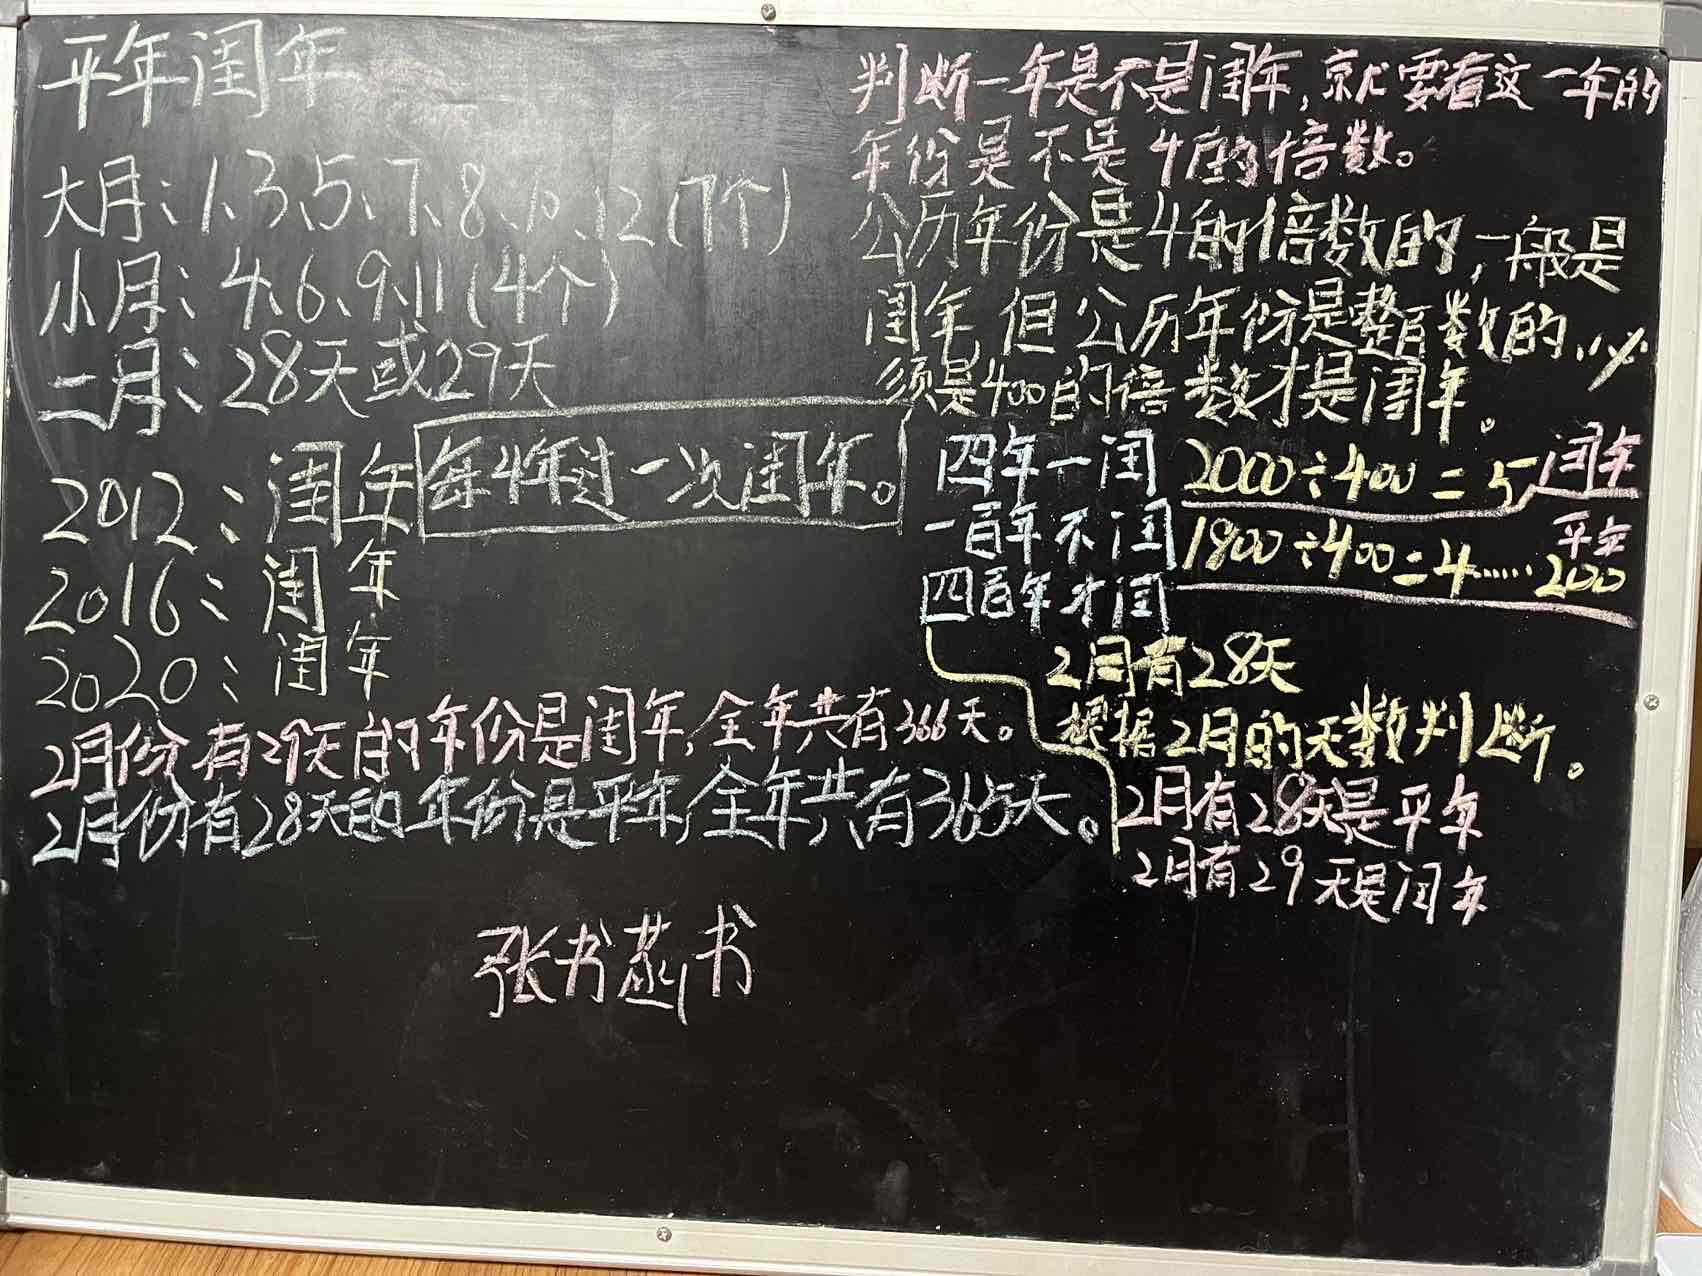 平年闰年
大月:1、3、5、7、8、10、12(7个)
小月:4、6、9、11(4个)
二月:28天或29天
2012:闰年
每4年过一次闰年。
2016:闰年
2020:闰年
2月份有29天的年份是闰年,全年共有366天。
2月份有28天的年份是平年,全年共有365天。
判断一年是不是闰年,就要看这一年的
年份是不是4的倍数。
公历年份是4的倍数的,一般是
闰年,但公历年份是整百数的,必
须是400的倍数才是闰年。
四年一闰
一百年不闰
四百年才闰
2000÷400=5 闰年
平年
1800÷400=4……200
2月有28天
根据2月的天数判断。
2月有28天是平年
2月有29天是闰年
张书燕书